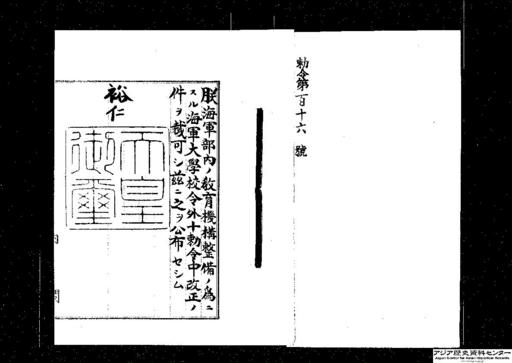 勅令第百十六號
朕海軍部内ノ教育機構整備ノ爲ニ
スル海軍大學校令外十勅令中改正ノ
件ヲ裁可シ茲ニ之ヲ公布セシム
裕仁
天皇御璽
アジア歴史資料センター
Japan Center for Asian Historical Records